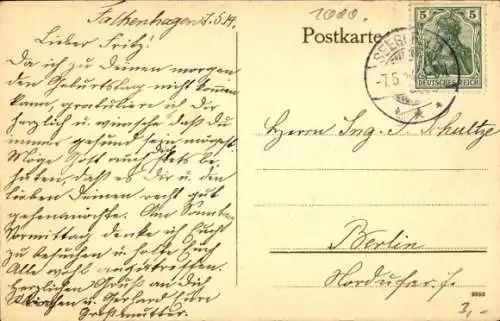 Falkenhagen 7.5.14.
Lieber Fritz!
Da ich zu Deinen morgen
den Geburtstag nicht kommen
kann, gratuliere ich Dir
herzlich u. wünsche daß du
immer gesund sein mögest.
Möge Gott auch dich stets be-
hüten, daß es Dir u. den
lieben Deinen recht gut
gehen möchte. Am Sonntag
Vormittag denke ich Euch
zu besuchen u. hoffe Euch
Alle wohl anzutreffen.
Herzlichen Gruß an dich
u. Gerhard Eure
Großmutter.
1000.
Postkarte
5 5
DEUTSCHES REICH
-7.5.14
Herrn Ing. F. Schultze
Berlin
Nordufer 7.
3,-